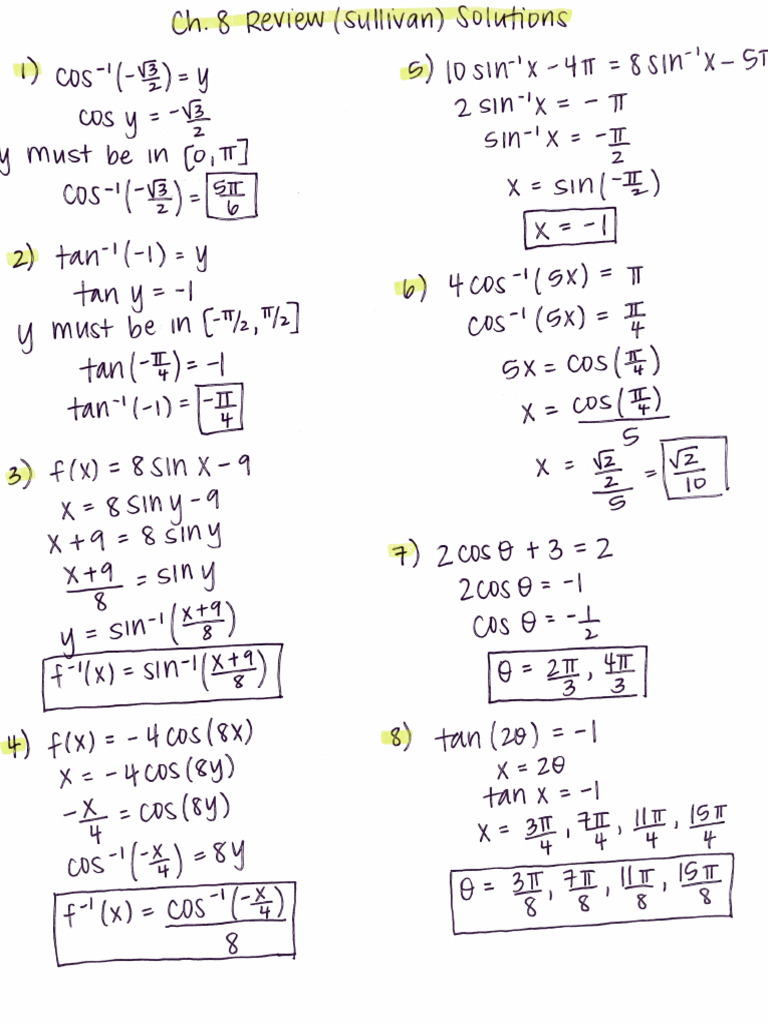 Ch. 8 Review (Sullivan) Solutions
1) cos⁻¹(-√3/2) = y
cos y = -√3/2
y must be in [0, π]
cos⁻¹(-√3/2) = 5π/6
2) tan⁻¹(-1) = y
tan y = -1
y must be in [-π/2, π/2]
tan(-π/4) = -1
tan⁻¹(-1) = -π/4
3) f(x) = 8 sin x - 9
x = 8 sin y - 9
x + 9 = 8 sin y
(x+9)/8 = sin y
y = sin⁻¹((x+9)/8)
f⁻¹(x) = sin⁻¹((x+9)/8)
4) f(x) = -4 cos(8x)
x = -4 cos(8y)
-x/4 = cos(8y)
cos⁻¹(-x/4) = 8y
f⁻¹(x) = cos⁻¹(-x/4)/8
5) 10 sin⁻¹x - 4π = 8 sin⁻¹x - 5π
2 sin⁻¹x = -π
sin⁻¹x = -π/2
x = sin(-π/2)
x = -1
6) 4cos⁻¹(5x) = π
cos⁻¹(5x) = π/4
5x = cos(π/4)
x = cos(π/4)/5
x = (√2/2)/5 = √2/10
7) 2cos θ + 3 = 2
2cos θ = -1
cos θ = -1/2
θ = 2π/3, 4π/3
8) tan(2θ) = -1
x = 2θ
tan x = -1
x = 3π/4, 7π/4, 11π/4, 15π/4
θ = 3π/8, 7π/8, 11π/8, 15π/8